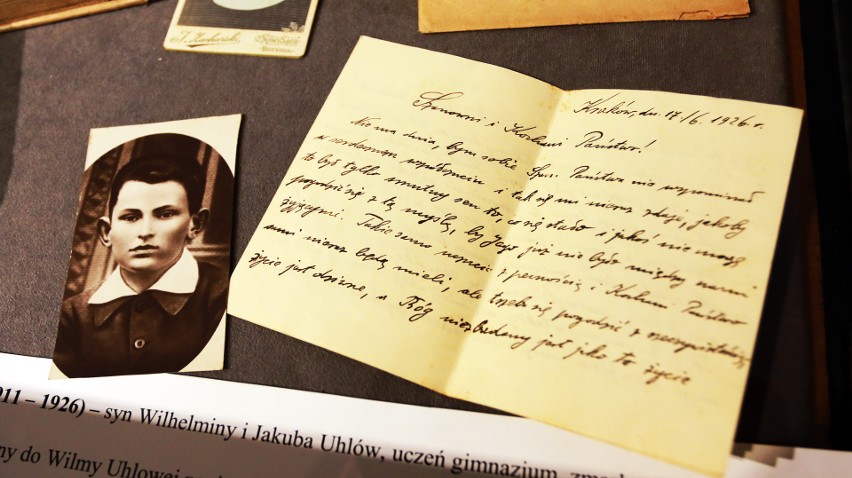 Kraków, dn. 17./6. 1926 r.
Szanowni i Kochani Państwo!
Nie ma dnia, bym sobie Szan. Państwa nie wspominał
w serdecznem współczuciu i tak się mi nieraz zdaje, jakoby
to był tylko smutny sen to, co się stało i jakoś nie mogę
pogodzić się z tą myślą, by Jego już nie było między nami
żyjącymi. Takie samo uczucie z pewnością i Kochani Państwo
nieraz będą mieli, ale trzeba się pogodzić z rzeczywistością
życie jest dziwne, a Bóg niezbadany jest jako to życie
911 – 1926) – syn Wilhelminy i Jakuba Uhlów, uczeń gimnazjum
ny do Wilmy Uhlowej